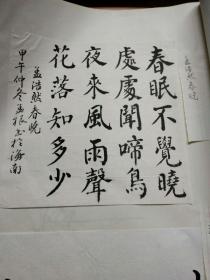 春眠不覺曉
處處聞啼鳥
夜來風雨聲
花落知多少
孟浩然春晚
甲午仲冬孟根書於海南
孟浩然春曉